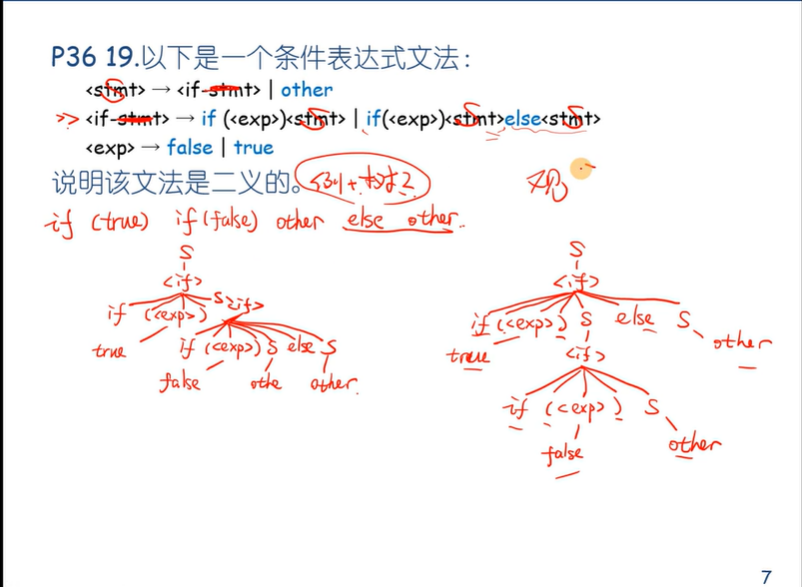 P36 19.以下是一个条件表达式文法：
<stmt> → <if-stmt> | other
>> <if-stmt> → if (<exp>)<stmt> | if(<exp>)<stmt>else<stmt>
<exp> → false | true
说明该文法是二义的。
if (true) if (false) other else other
S
<if>
if (<exp>) S <if>
true if (<exp>) S else S
false othe other
S
<if>
if (<exp>) S else S
true <if> other
if (<exp>) S
false other
7